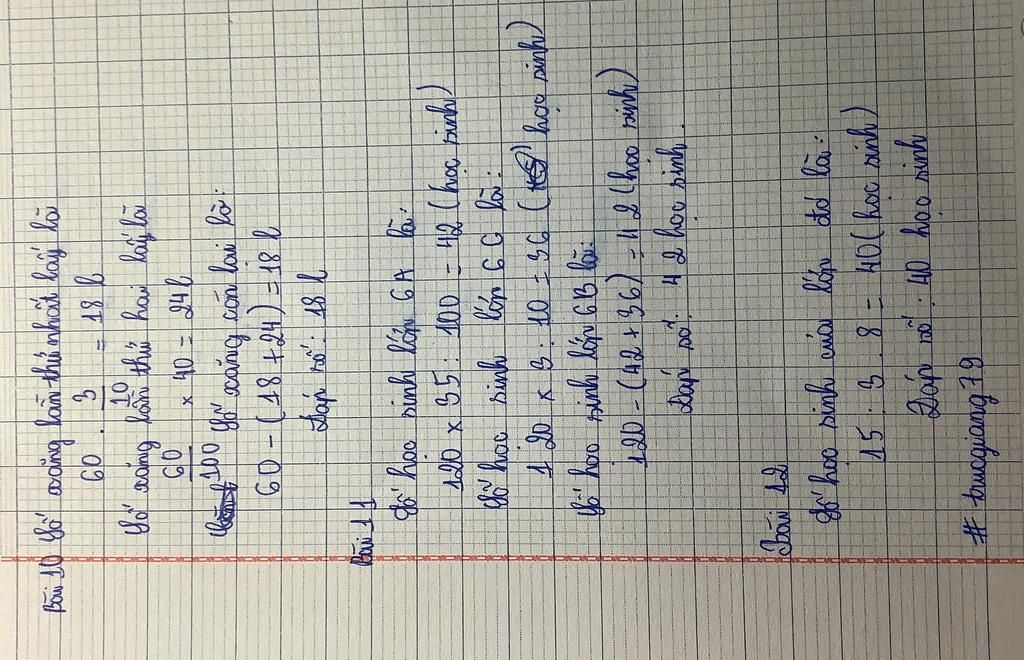 Bài 10 Số xăng lần thứ nhất lấy là
60 . 3/10 = 18 l
Số xăng lần thứ hai lấy là
60/100 x 40 = 24 l
Số xăng còn lại là:
60 - (18 + 24) = 18 l
Đáp số: 18 l
Bài 11
Số học sinh lớp 6A là:
120 x 35 : 100 = 42 (học sinh)
Số học sinh lớp 6C là:
120 x 3 : 10 = 36 (học sinh)
Số học sinh lớp 6B là:
120 - (42 + 36) = 42 (học sinh)
Đáp số: 42 học sinh.
Bài 12
Số học sinh của lớp đó là:
15 : 3 . 8 = 40 (học sinh)
Đáp số: 40 học sinh